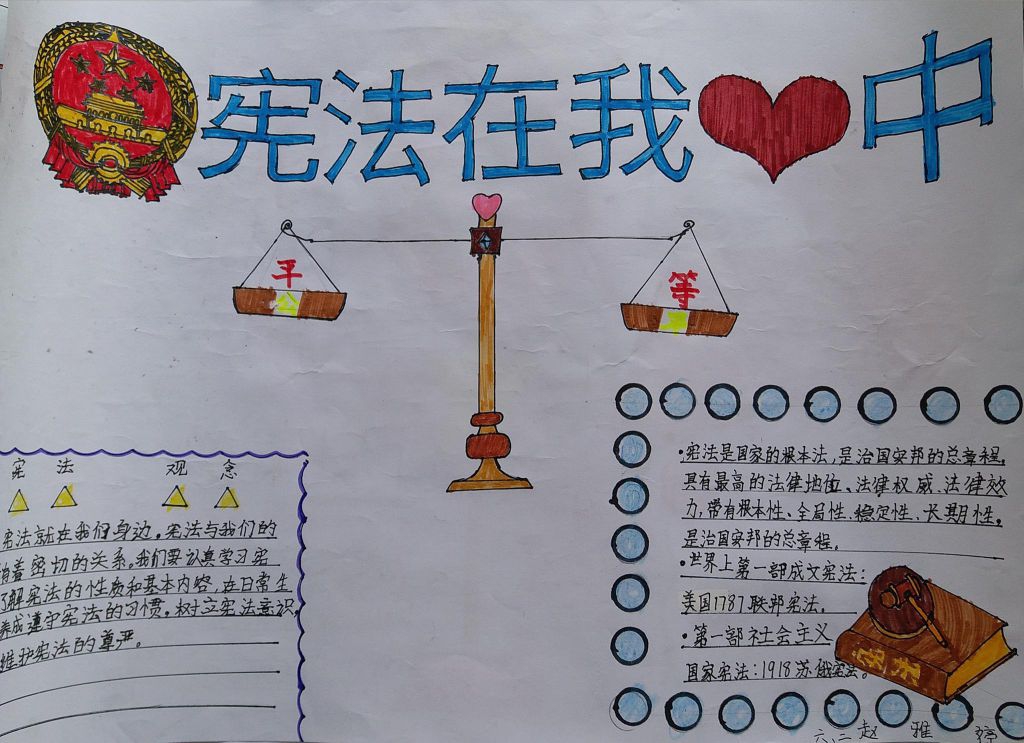 宪法在我中
平
等
公
正
宪法 观念
宪法就在我们身边。宪法与我们的
有着密切的关系。我们要认真学习宪
了解宪法的性质和基本内容，在日常生
养成遵守宪法的习惯。树立宪法意识，
维护宪法的尊严。
·宪法是国家的根本法，是治国安邦的总章程，
具有最高的法律地位、法律权威、法律效
力，带有根本性、全局性、稳定性、长期性。
是治国安邦的总章程。
·世界上第一部成文宪法：
美国1787联邦宪法。
·第一部社会主义
国家宪法：1918苏俄宪法。
宪法
六、二 赵雅婷